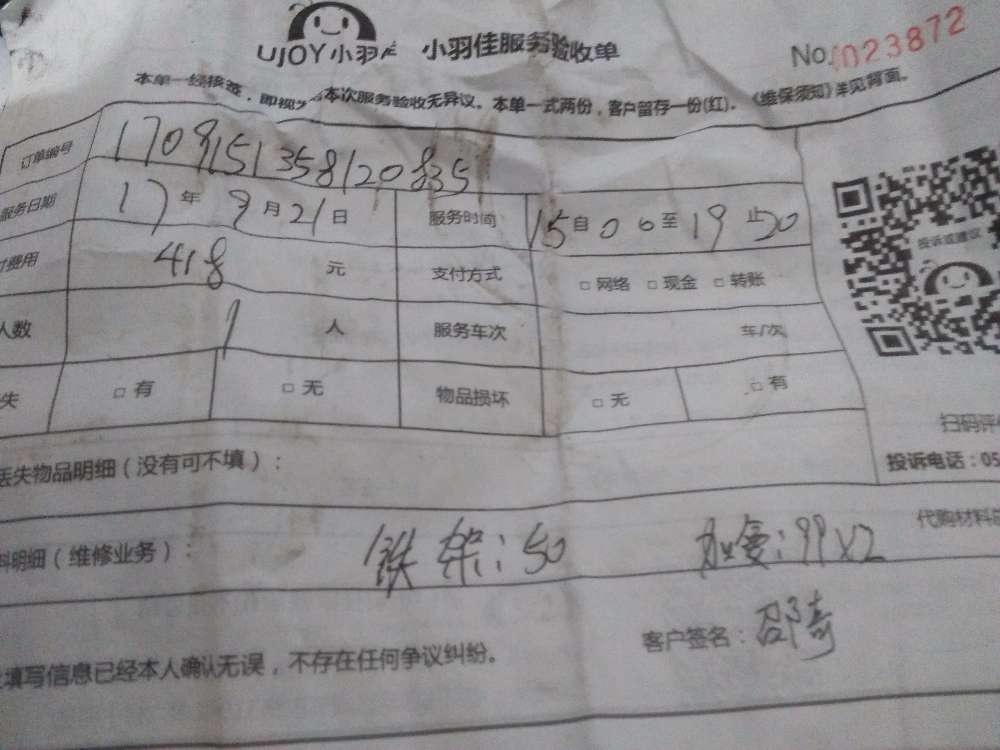 UJOY小羽佳 小羽佳服务验收单 No.1023872
本单一经接签，即视为本次服务验收无异议。本单一式两份，客户留存一份(红)。《维保须知》详见背面。
订单编号 1709151358120835
服务日期 17年9月21日 服务时间 15自00至19止50
费用 418元 支付方式 □网络 □现金 □转账
人数 1人 服务车次 车/次
失 □有 □无 物品损坏 □无 □有
投诉或建议
扫码评
投诉电话：05
丢失物品明细（没有可不填）：
代购材料
料明细（维修业务）： 铁架：50 99×2
填写信息已经本人确认无误，不存在任何争议纠纷。 客户签名：邵奇